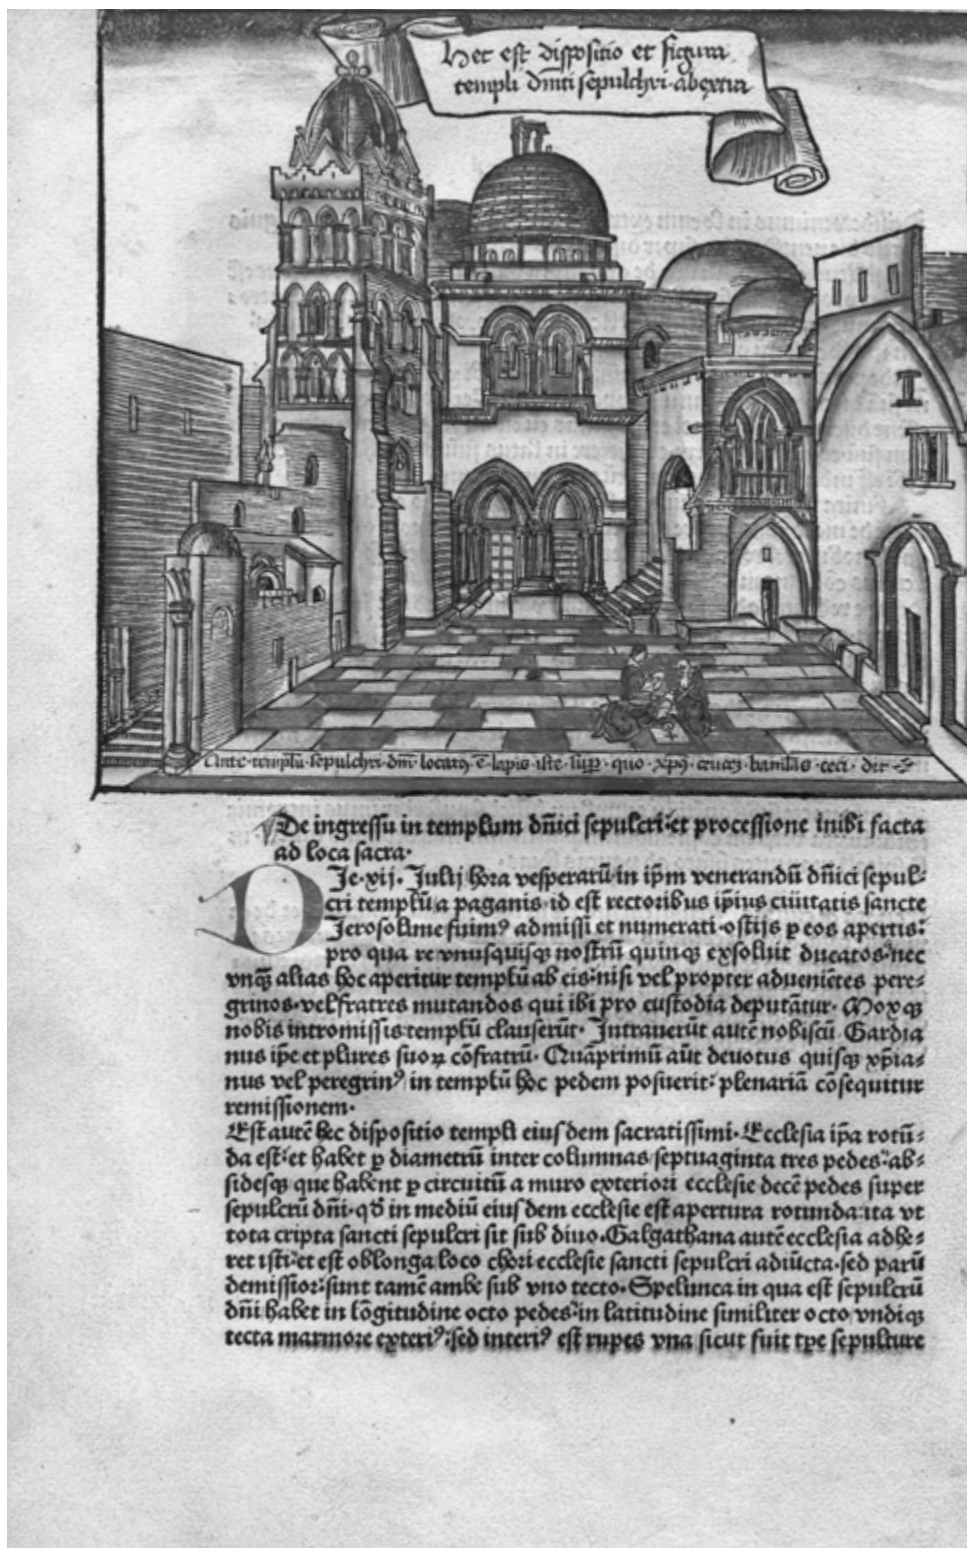 Hec est dispositio et figura
templi dn̄ici sepulchri abextra
Ante templū sepulchri dnī locatꝰ ē lapis iste suꝑ quo xp̄s crucē
De ingressu in templum dn̄ici sepulcri: et processione inibi facta
ad loca sacra.
DIe .xij. Iulij hora vesperarū in ip̄m venerandū dn̄ici sepul⸗
cri templū a paganis. id est rectoribus ip̄ius ciuitatis sancte
Jerosolime fuimꝰ admissi et numerati. ostijs ꝑ eos apertis:
pro qua re vnusquisqꝫ nostrū quinqꝫ exsoluit ducatos: nec
vnqꝫ̄ alias hoc aperitur templū ab eis: nisi vel propter adueniētes pere⸗
grinos. vel fratres mutandos qui ibi pro custodia deputātur. Moxqꝫ
nobis intromissis templū clauserūt. Intrauerūt autē nobiscū Gardia
nus ip̄e et plures suoꝝ cōfratrū. Quāprimū aūt deuotus quisqꝫ xp̄ia⸗
nus vel peregrinꝰ in templū hoc pedem posuerit: plenariā cōsequitur
remissionem.
Est autē hec dispositio templi eiusdem sacratissimi. Ecclesia ip̄a rotū⸗
da est: et habet ꝑ diametrū inter columnas septuaginta tres pedes: ab⸗
sidesqꝫ que habent ꝑ circuitū a muro exteriori ecclesie decē pedes super
sepulcrū dn̄i. qđ in mediū eiusdem ecclesie est apertura rotunda: ita vt
tota cripta sancti sepulcri sit sub diuo. Galgathana autē ecclesia adhe⸗
ret isti: et est oblonga loco chori ecclesie sancti sepulcri adiūcta. sed parū
demissior: sunt tamē ambe sub vno tecto. Spelunca in qua est sepulcrū
dn̄i habet in lōgitudine octo pedes: in latitudine similiter octo vndiqꝫ
tecta marmore exteriꝰ: sed interiꝰ est rupes vna sicut fuit tꝑe sepulture